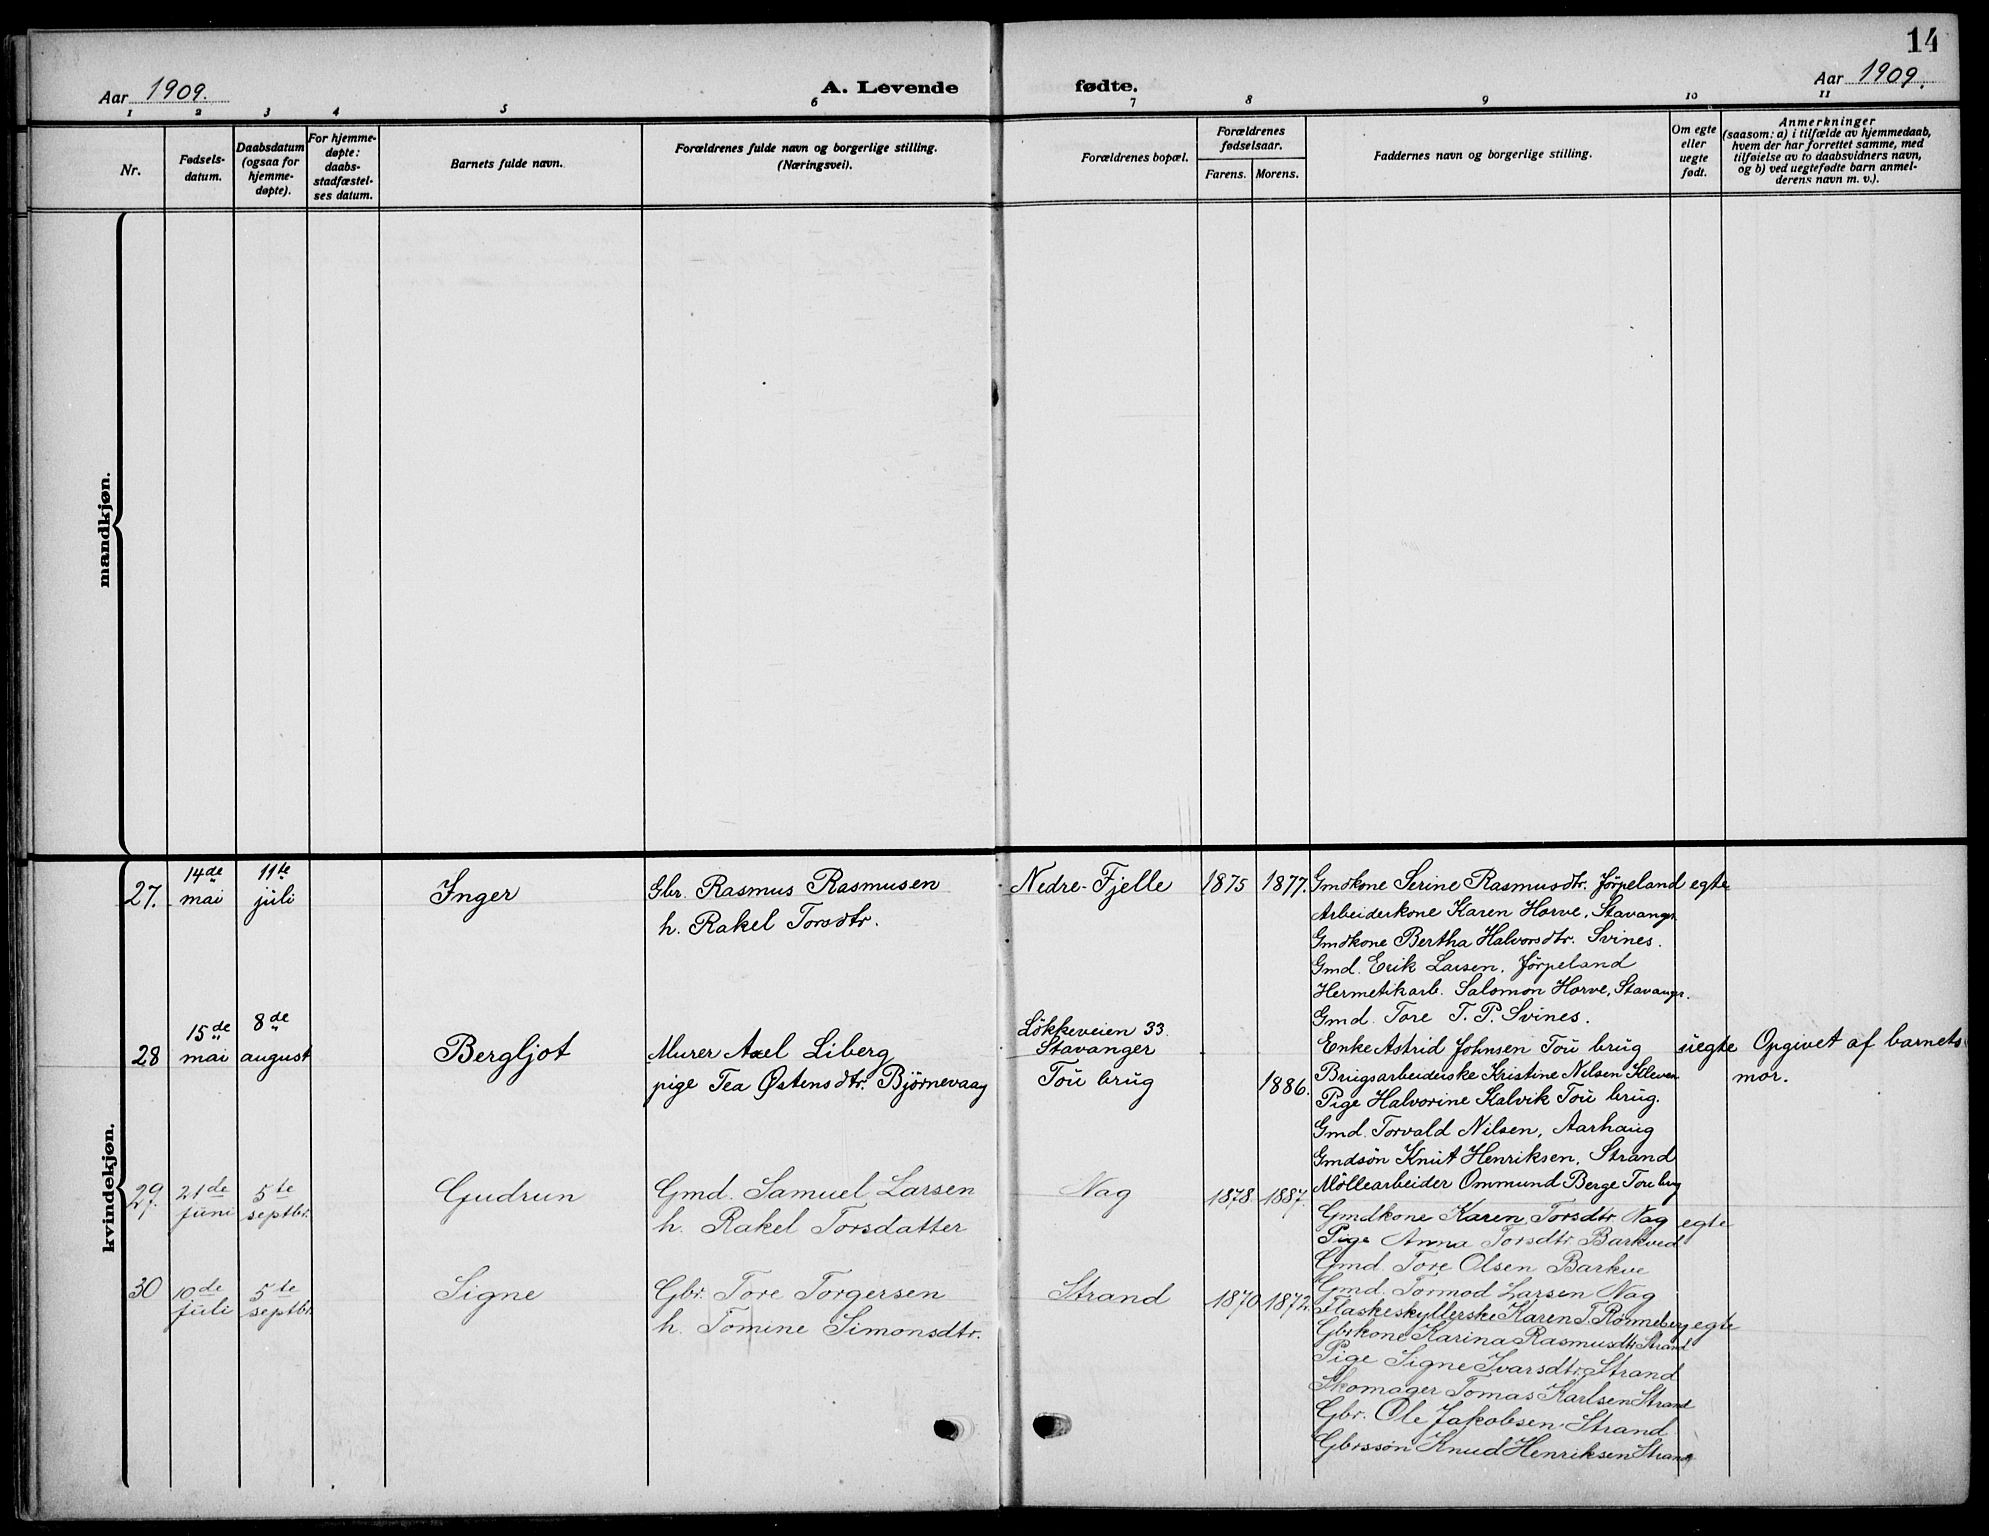 14
Aar 1909.
A. Levende fødte.
Aar 1909.
1 2 3 4 5 6 7 8 9 10 11
Nr.
Fødsels-
datum.
Daabsdatum
(ogsaa for
hjemme-
døpte).
For hjemme-
døpte:
daabs-
stadfæstel-
ses datum.
Barnets fulde navn.
Forældrenes fulde navn og borgerlige stilling.
(Næringsvei).
Forældrenes bopæl.
Forældrenes
fødselsaar.
Farens. Morens.
Faddernes navn og borgerlige stilling.
Om egte
eller
uegte
født.
Anmerkninger
(saasom: a) i tilfælde av hjemmedaab,
hvem der har forrettet samme, med
tilføielse av to daabsvidners navn,
og b) ved uegtefødte barn anmel-
derens navn m. v.).
mandkjøn.
kvindekjøn.
27.
14de
mai
11te
juli
Inger
Gbr. Rasmus Rasmusen
h. Rakel Torsdtr.
Nedre-Fjelle
1875
1877.
Gmdkone Serine Rasmusdtr. Jörpeland
Arbeiderkone Karen Horve, Stavangr.
Gmdkone Bertha Halvorsdtr. Svines.
Gmd. Erik Larsen, Jörpeland
Hermetikarb. Salomon Horve, Stavangr.
Gmd. Tore T. P. Svines.
egte
28
15de
mai
8de
august
Bergljot
Murer Axel Liberg
pige Tea Østensdtr. Björnevaag
Lökkeveien 33.
Stavanger
Tou brug
1886.
Enke Astrid Johnsen Tou brug
Brugsarbeiderske Kristine Nilsen Kleven
Pige Halvorine Kalvik Tou brug.
Gmd. Torvald Nilsen, Aarhaug
Gmdsön Knut Henriksen, Strand
Möllearbeider Ommund Berge Tou brg
uegte
Opgivet af barnets
mor.
29.
21de
juni
5te
septbr.
Gudrun
Gmd. Samuel Larsen
h. Rakel Torsdatter
Nag
1878.
1887.
Gmdkone Karen Torsdtr. Nag
Pige Anna Torsdtr. Barkved
Gmd. Tore Olsen Barkve
Gmd. Tormod Larsen Nag
egte
30
10de
juli
5te
septbr.
Signe
Gbr. Tore Torgersen
h. Tomine Simonsdtr.
Strand
1870
1872.
Flaskeskyllerske Karen T. Rönneberg
Gbrkone Karina Rasmusdtr Strand
Pige Signe Ivarsdtr. Strand
Skomager Tomas Karlsen Strand
Gbr. Ole Jakobsen Strand
Gbrssön Knud Henriksen Strand
egte